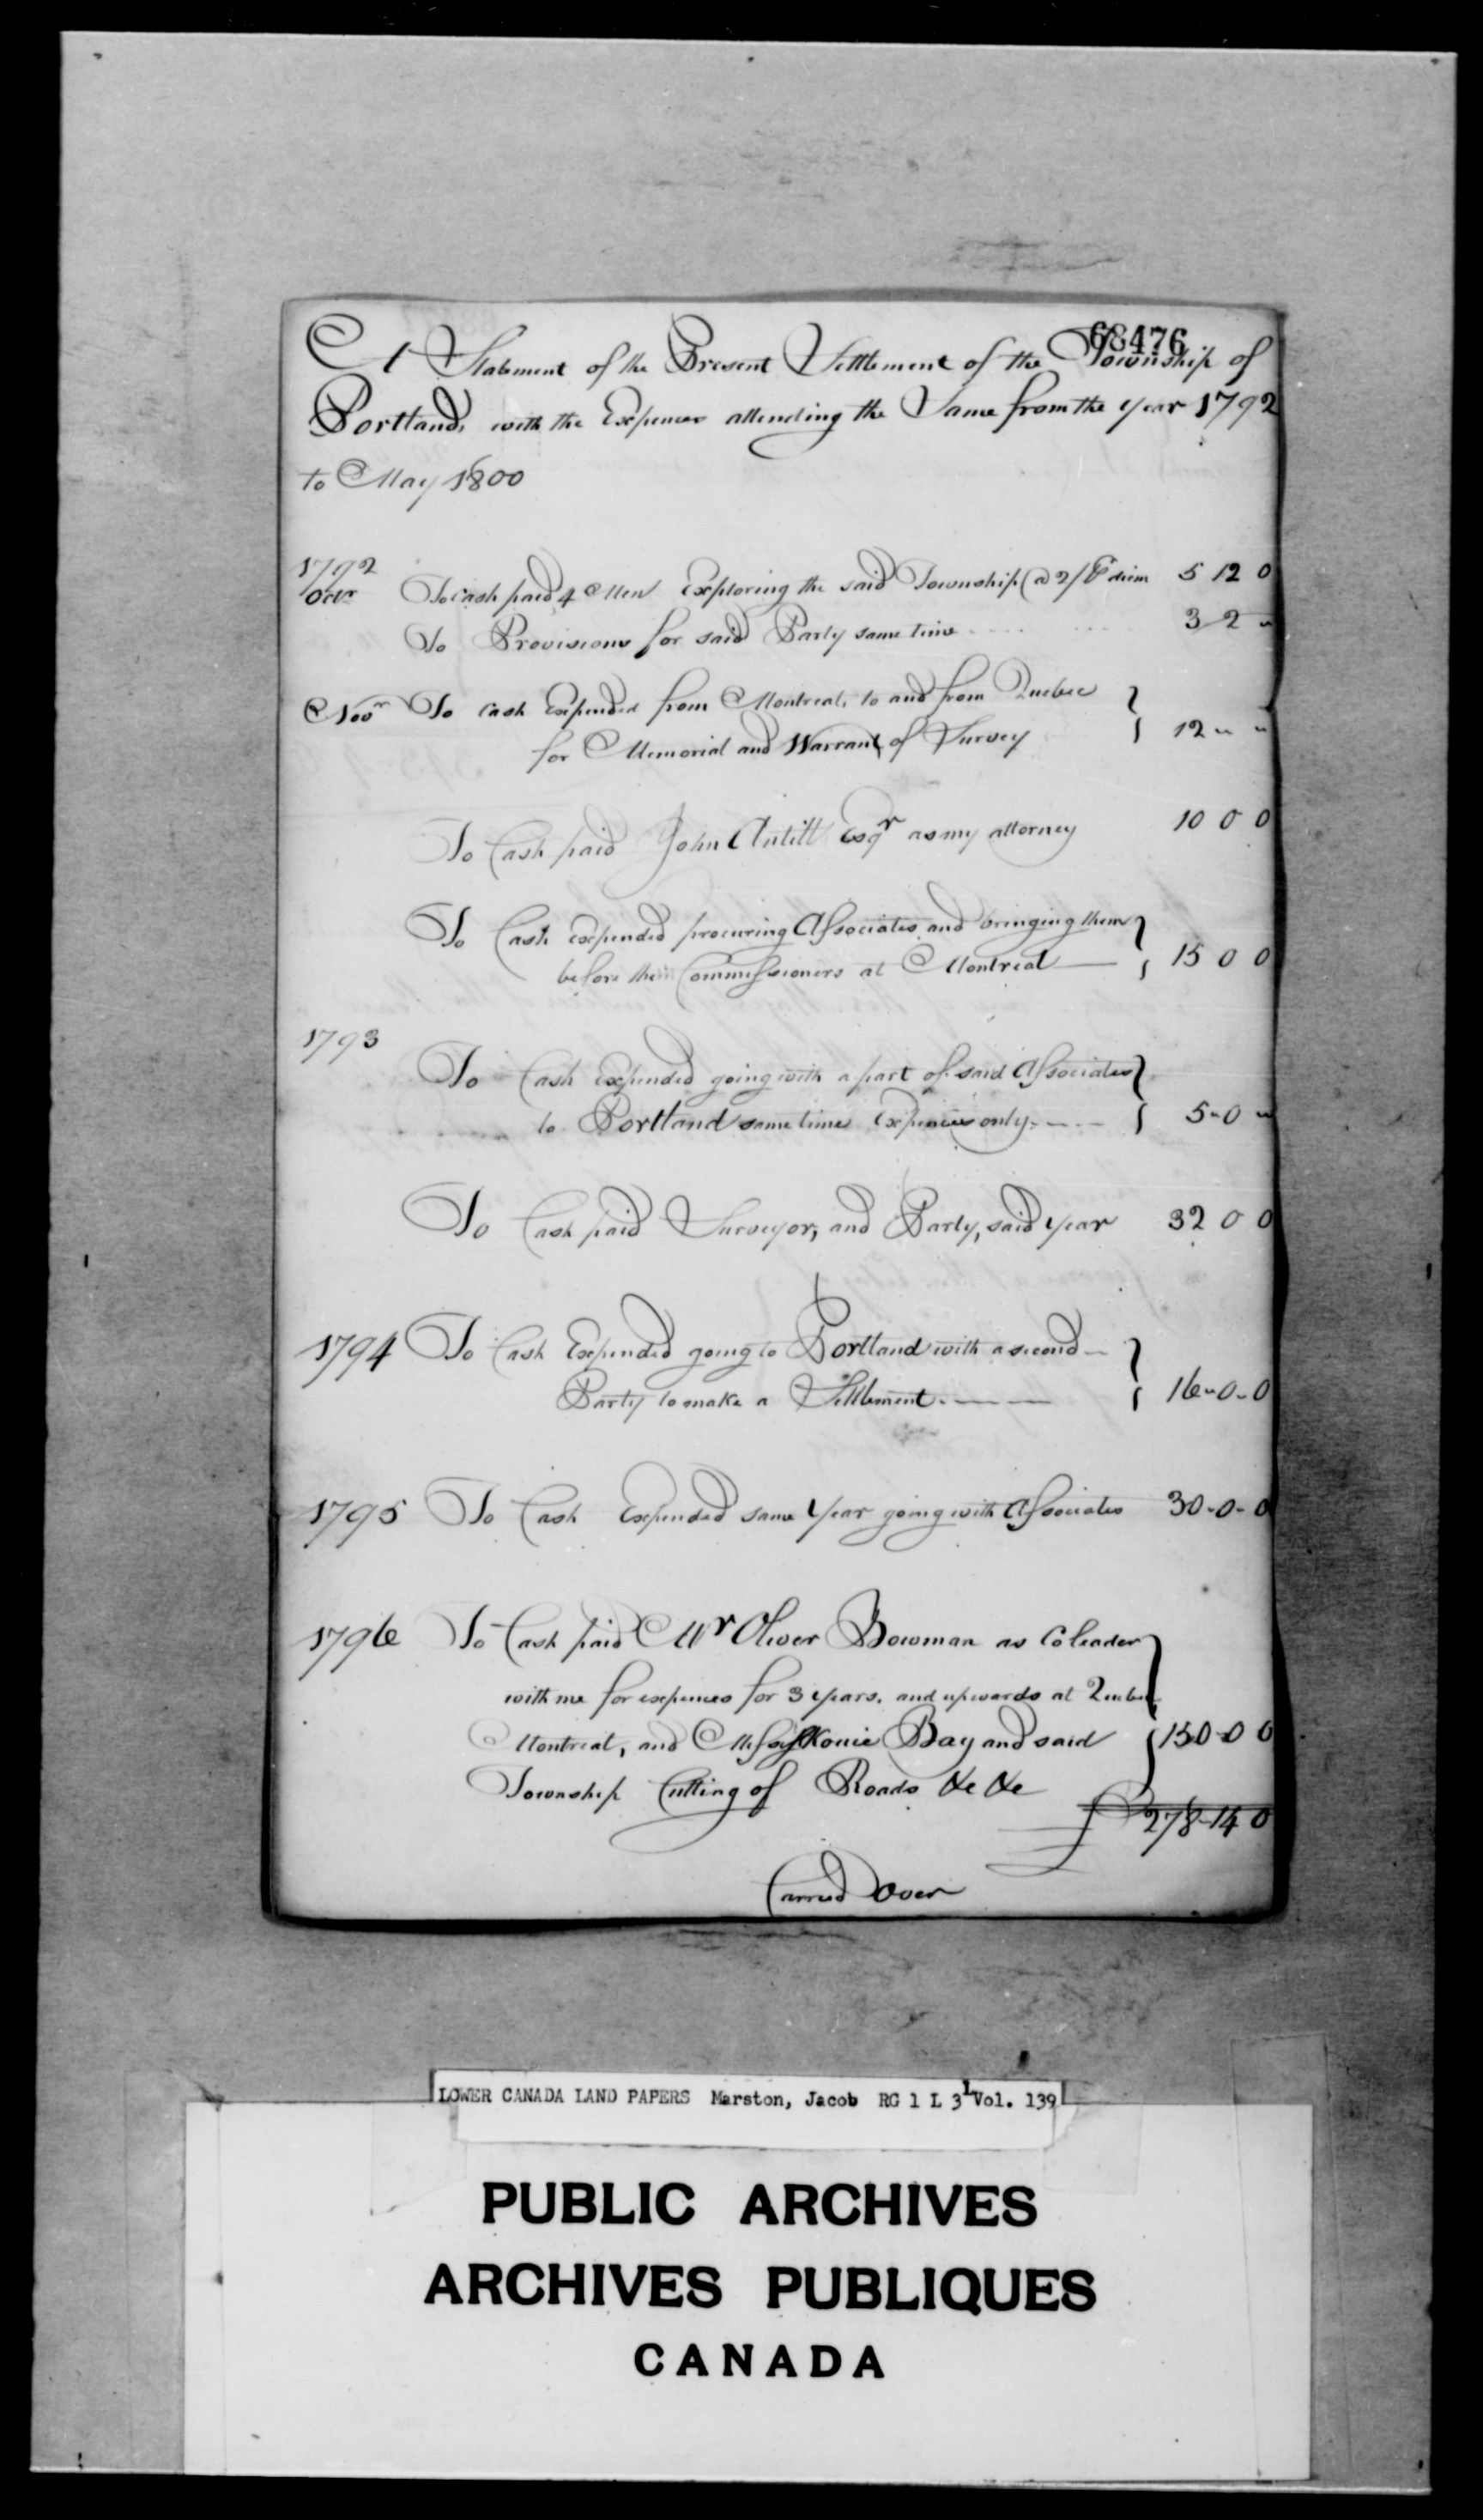 68476
A Statement of the Present Settlement of the Township of
Portland, with the Expences attending the Same from the year 1792
to May 1800
1792
Octr To Cash paid 4 Men Exploring the said Township @ 2/ ⅌ diem 5 12 0
To Provisions for said Party same time 3 2 "
Novr To Cash Expended from Montreal, to and from Quebec
for Memorial and Warrant of Survey 12 " "
To Cash paid John Antill Esqr as my attorney 10 0 0
To Cash expended procuring Associates and bringing them
before the Commissioners at Montreal 15 0 0
1793
To Cash Expended going with a part of said Associates
to Portland same time Expences only 5 " 0 "
To Cash paid Surveyor, and Party, said year 32 0 0
1794 To Cash Expended going to Portland with a second
Party to make a Settlement 16 " 0 - 0
1795 To Cash Expended same Year going with Associates 30 - 0 - 0
1796 To Cash paid Mr Oliver Bowman as Coleader
with me for expences for 3 years. and upwards at Quebec
Montreal, and Bay and said 150 - 0 0
Township Cutting of Roads &c &c
£ 278 - 14 0
Carried Over
LOWER CANADA LAND PAPERS Marston, Jacob RG 1 L 3L Vol. 139
PUBLIC ARCHIVES
ARCHIVES PUBLIQUES
CANADA